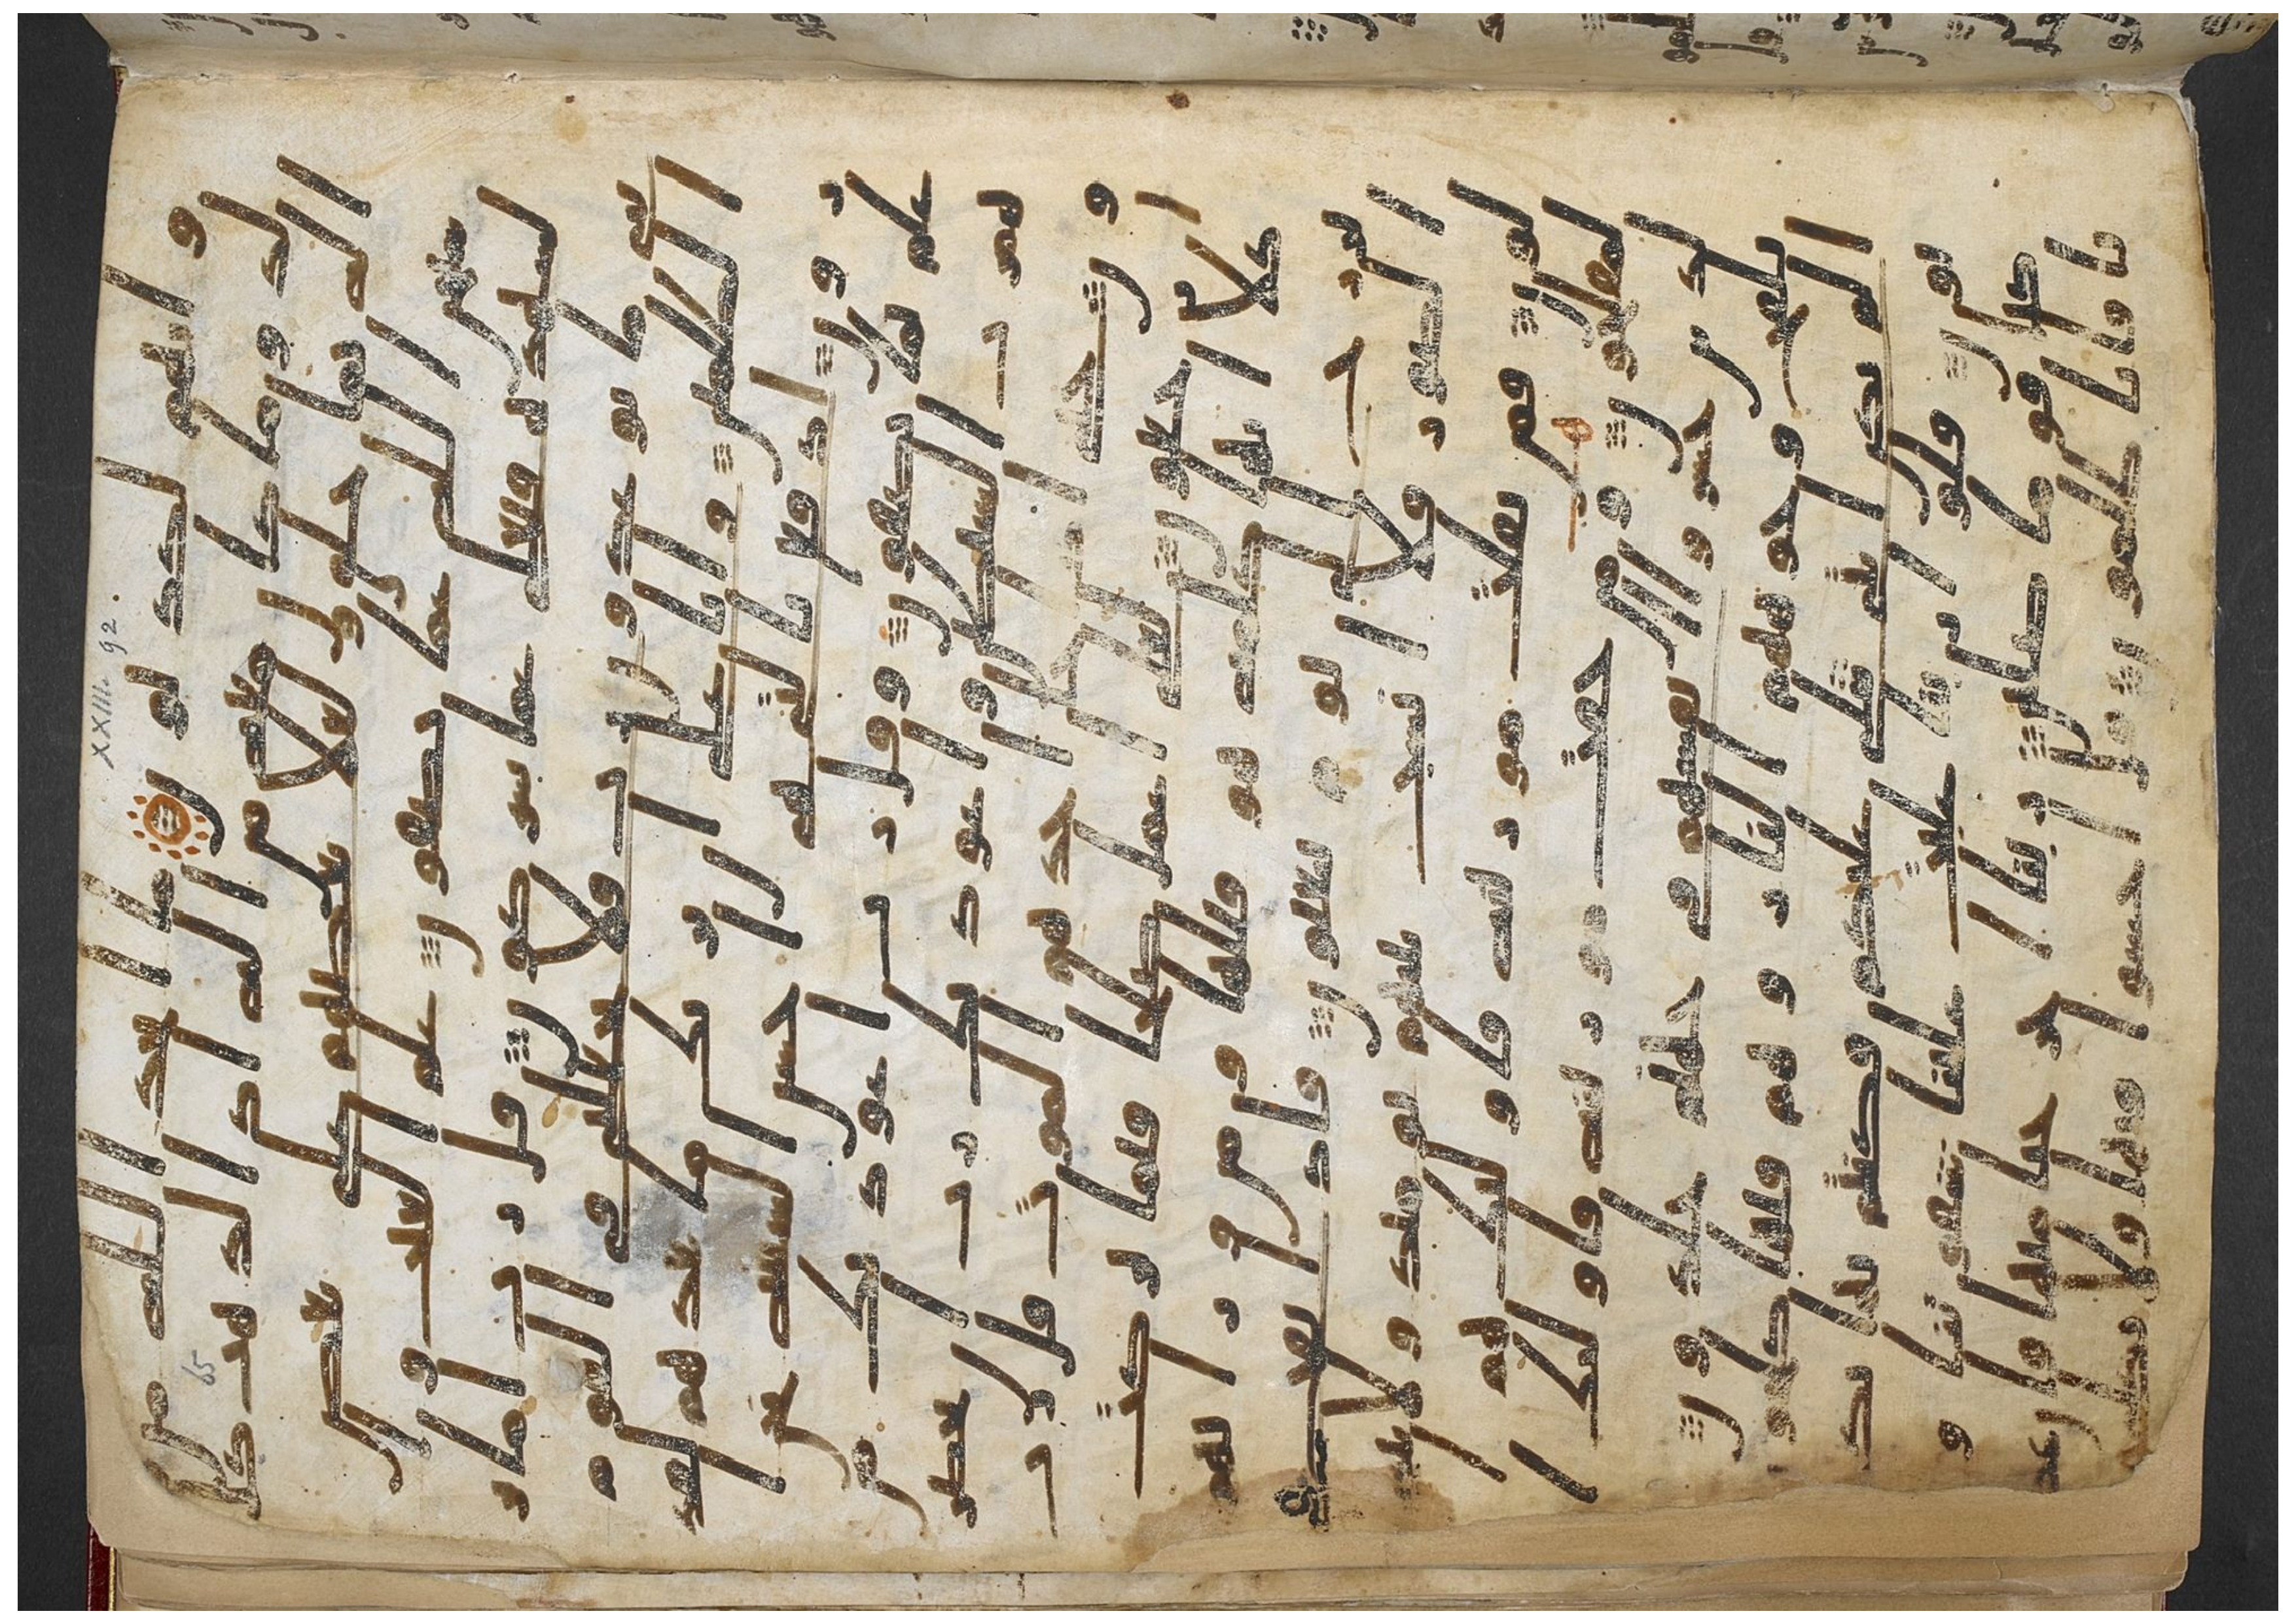 XXIII. 92.
65
و انهم لكذبون ما اتخذ الله من
ولد وما كان معه من اله اذا لذهب كل
اله بما خلق ولعلا بعضهم على بعض
سبحن الله عما يصفون علم الغيب و ا
لشهده فتعلى عما يشركون قل رب اما
تريني ما يوعدون رب فلا تجعلني في القوم
الظلمين وانا على ان نريك ما نعدهم لقد
رون ادفع بالتي هي احسن السيه نحن ا
علم بما يصفون وقل رب اعوذ بك من
همزت الشيطين واعوذ بك رب ان يحضر
ون حتى اذا جا احدهم الموت قال رب
ارجعون لعلي اعمل صلحا فيما تركت
كلا انها كلمه هو قايلها ومن ورايهم بر
زخ الى يوم يبعثون فاذا نفخ في
الصور فلا انسب بينهم يوميذ ولا يتسا
لون فمن ثقلت موزينه فاوليك هم ا
لمفلحون ومن خفت موزينه فاوليك ا
لذين خسروا انفسهم في جهنم خلدون
تلفح وجوههم النار وهم فيها كلحون
الم تكن ايتي تتلى عليكم فكنتم بها تكذ
بون قالوا ربنا غلبت علينا شقوتنا و
كنا قوما ضالين ربنا اخرجنا منها فان عد
نا فانا ظلمون قال اخسوا فيها ولا تكلمون